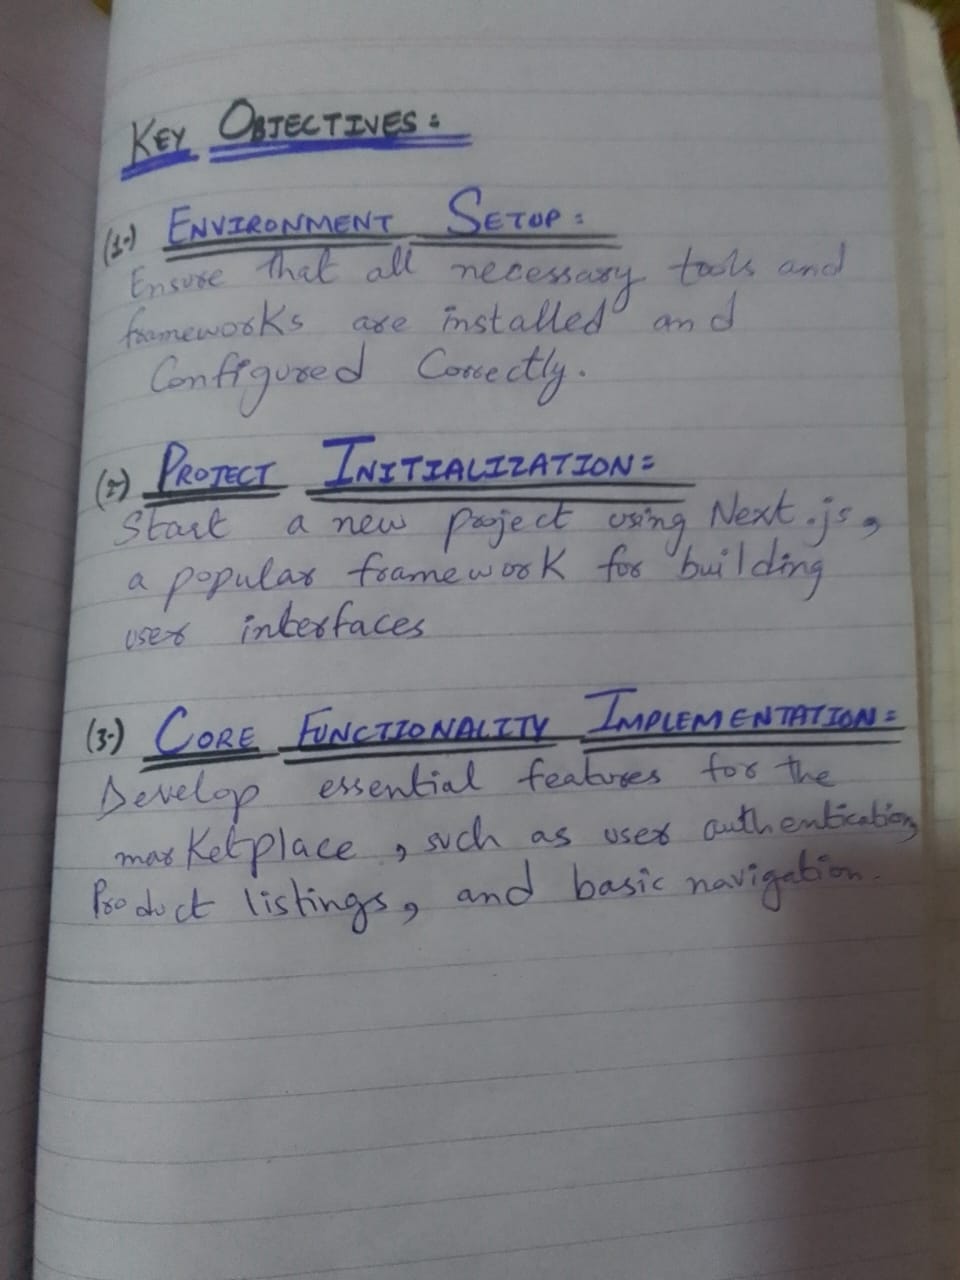 KEY OBJECTIVES:
(1.) ENVIRONMENT SETUP:
Ensure that all necessary tools and
frameworks are installed and
Configured Correctly.
(2.) PROJECT INITIALIZATION:
Start a new project using Next.js,
a popular framework for building
user interfaces
(3.) CORE FUNCTIONALITY IMPLEMENTATION:
Develop essential features for the
marketplace, such as user authentication,
Product listings, and basic navigation.